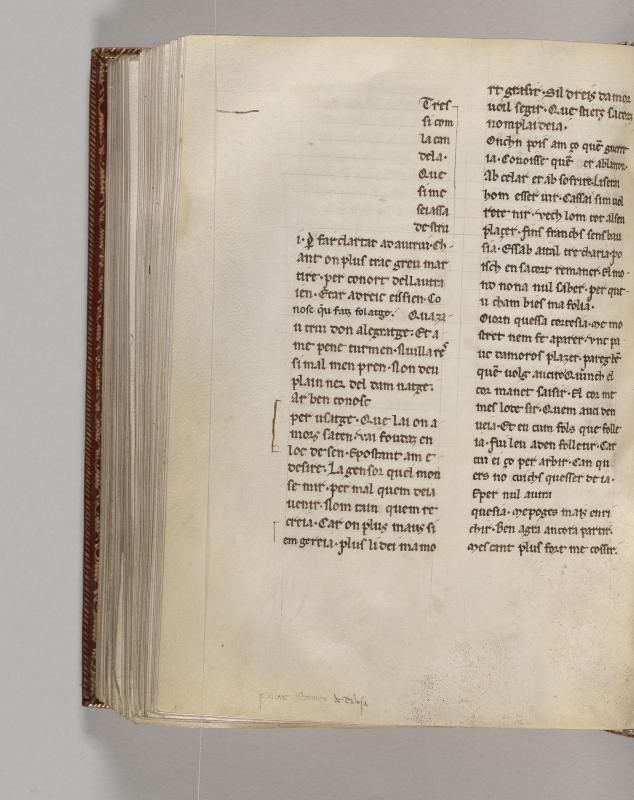 Tres
si com
la can
dela·
Que
si me
seiassa
destru
i· ꝑ far clartat ad autrui· Ch
ant on plus trac greu mar
tire· per conort dellautra
ien· Etar a dreic eissien· Co
nosc qu faz folatge· Qua za
u trui don alegratge· Et a
me pene turmen· Nuilla re
si mal men pren· Non deu
plain ner del dam natge·
Ar ben conosc
per usatge· Que lai on a
mors saten· Vai foudaz en
loc de sen· E postant am e
desire· La gensor quel mon
se mir· per mal quem deia
uenir· Nom tain quem re
creia· Car on plus maus si
em gereia· plus li dei ma mo
rt grasir· Sil dreiz damor
uoil segir· Que sciers sa corz
nom plaideia·
Onchn pois am ço quē guerr
ia· Conoisse quē er ablamor·
Ab celar et ab sofrir· Li serai
hom esser uir· Cassai sim uol
rete nir· vech lom tot alseu
plaçer· fins franchs sens bau
sia· Essab aital tricharia· po
isch en sa cort remaner· El mo
nd nona nul saber· per que
u cham bies ma folia·
Onorn quessa cortesia· me mo
stret nem fe aparer· vnc pa
uc damoros plazer· pareg bē
quē uolg aucire· Quinch el
cor manet saisir· El cor me
mes lote sir· Quem auci den
ueia· Et eu cum fols que folle
ia· fui leu aden folletir· Car
cui ei ço per arbir· Can qu
ers no cuichs quesser de ia·
E per nul autra
questia· me poges mais enri
chir· Ben agra ancora partir·
Mes tant plus fort me cossir·